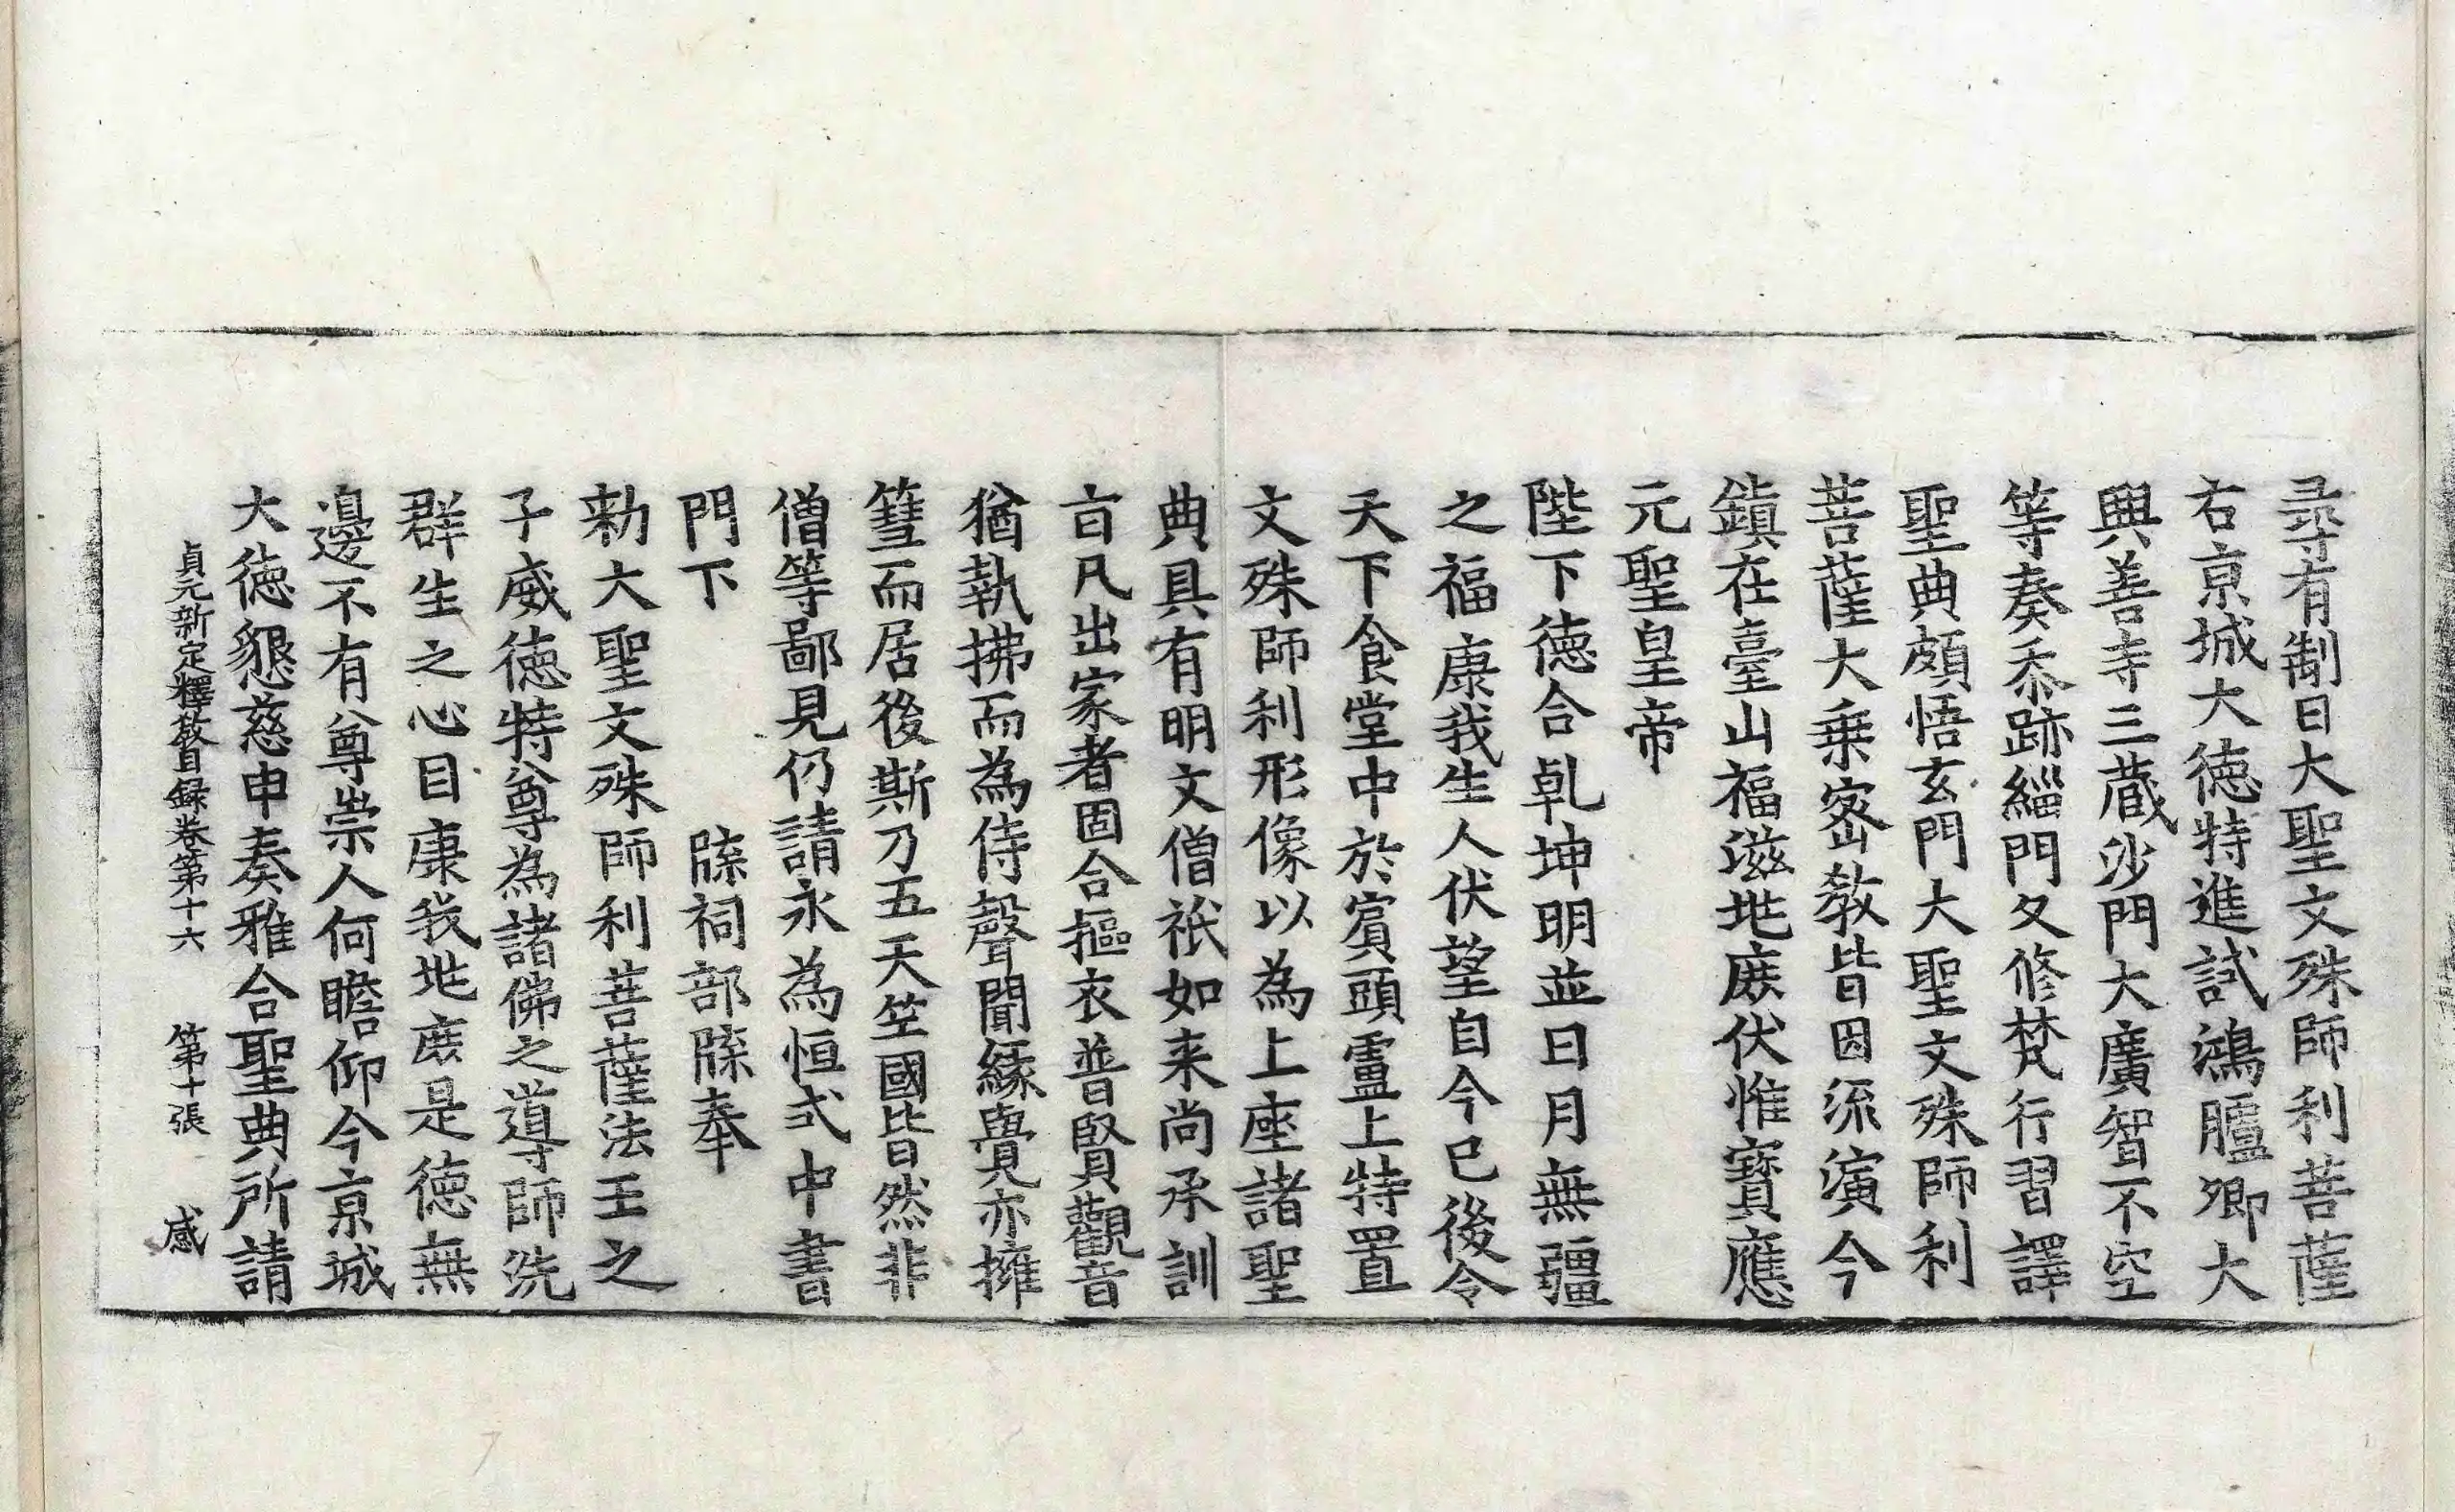 尋有制曰大聖文殊師利菩薩
右京城大德特進試鴻臚卿大
興善寺三蔵沙門大廣智不空
等奏忝跡緇門久修梵行習譯
聖典頗悟玄門大聖文殊師利
菩薩大乗密教皆因流演今
鎮在臺山福滋地庶伏惟寶應
元聖皇帝
陛下徳合乹坤明並日月無疆
之福康我生人伏望自今已後令
天下食堂中於賔頭盧上特置
文殊師利形像以為上座諸聖
典具有明文僧祇如来尚承訓
旨凡出家者固合摳衣普賢觀音
猶執拂而為侍聲聞緣覺亦擁
篲而居後斯乃五天竺國皆然非
僧等鄙見仍請永為恒式中書
門下　　　牒祠部牒奉
勑大聖文殊師利菩薩法王之
子威徳特尊為諸佛之導師洗
群生之心目康我地庶是徳無
邊不有尊崇人何瞻仰今京城
大徳懇慈申奏雅合聖典所請
貞元新定釋教目録卷第十六　第十張　感